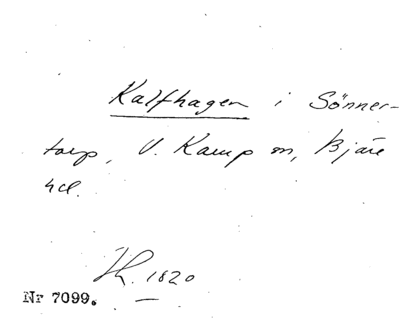 Kalfhagen i Sönner-
torp, V. Karup sn, Bjäre
hd.
Hk. 1820
Nr 7099.